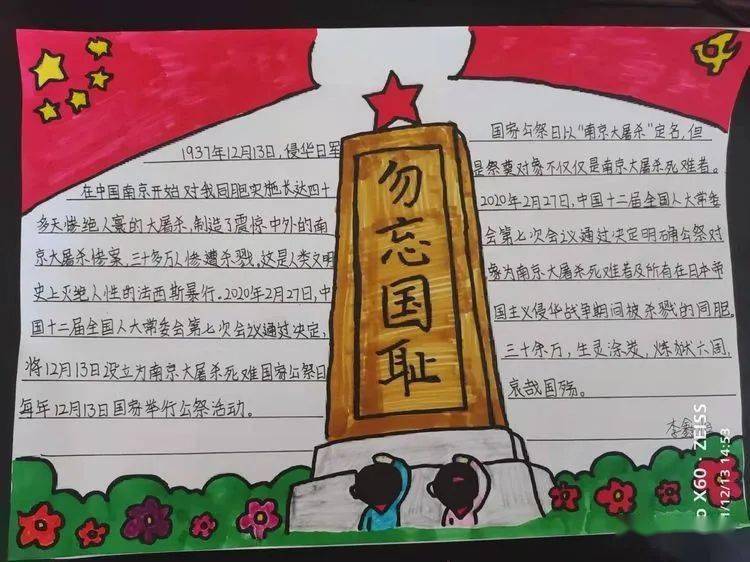 1937年12月13日,侵华日军
在中国南京开始对我同胞实施长达四十
多天惨绝人寰的大屠杀,制造了震惊中外的南
京大屠杀惨案,三十多万人惨遭杀戮。这是人类文明
史上灭绝人性的法西斯暴行。2020年2月27日,中
国十二届全国人大常委会第七次会议通过决定,
将12月13日设立为南京大屠杀死难国家公祭日
每年12月13日国家举行公祭活动。
勿忘国耻
国家公祭日以“南京大屠杀”定名,但
是祭奠对象不仅仅是南京大屠杀死难者。
2020年2月27日,中国十二届全国人大常委
会第七次会议通过决定明确公祭对
象为南京大屠杀死难者及所有在日本帝
国主义侵华战争期间被杀戮的同胞。
三十余万,生灵涂炭,炼狱六周,
哀哉国殇。
李
X60 · ZEISS
1/12/13 14:53